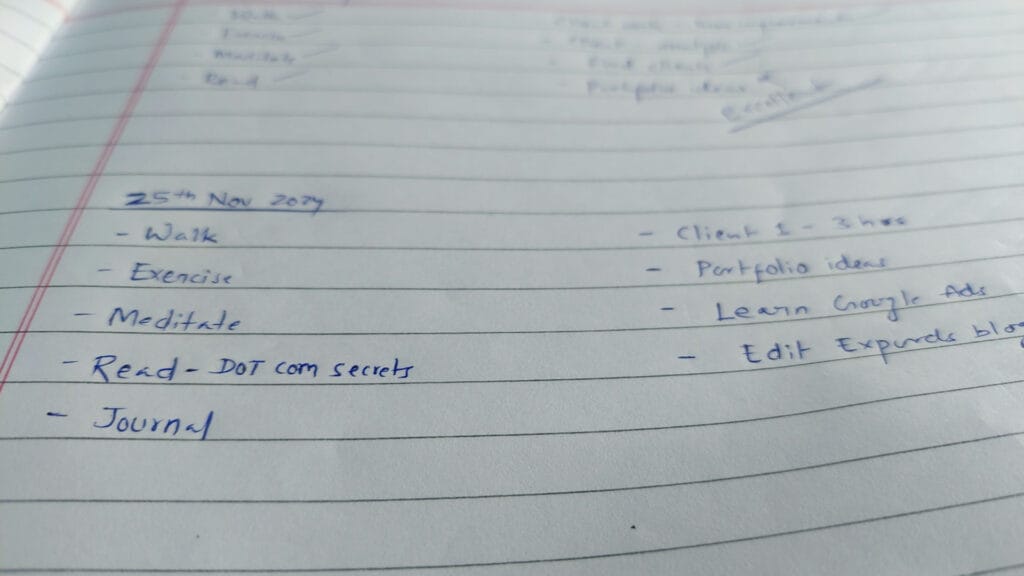 Walk
Exercise
Meditate
Read
Find clients
Portfolio ideas
Excellent
25th Nov 2024
- Walk
- Exercise
- Meditate
- Read - DOT com secrets
- Journal
- Client 1 - 3 hrs
- Portfolio ideas
- Learn Google Ads
- Edit Expurds blog